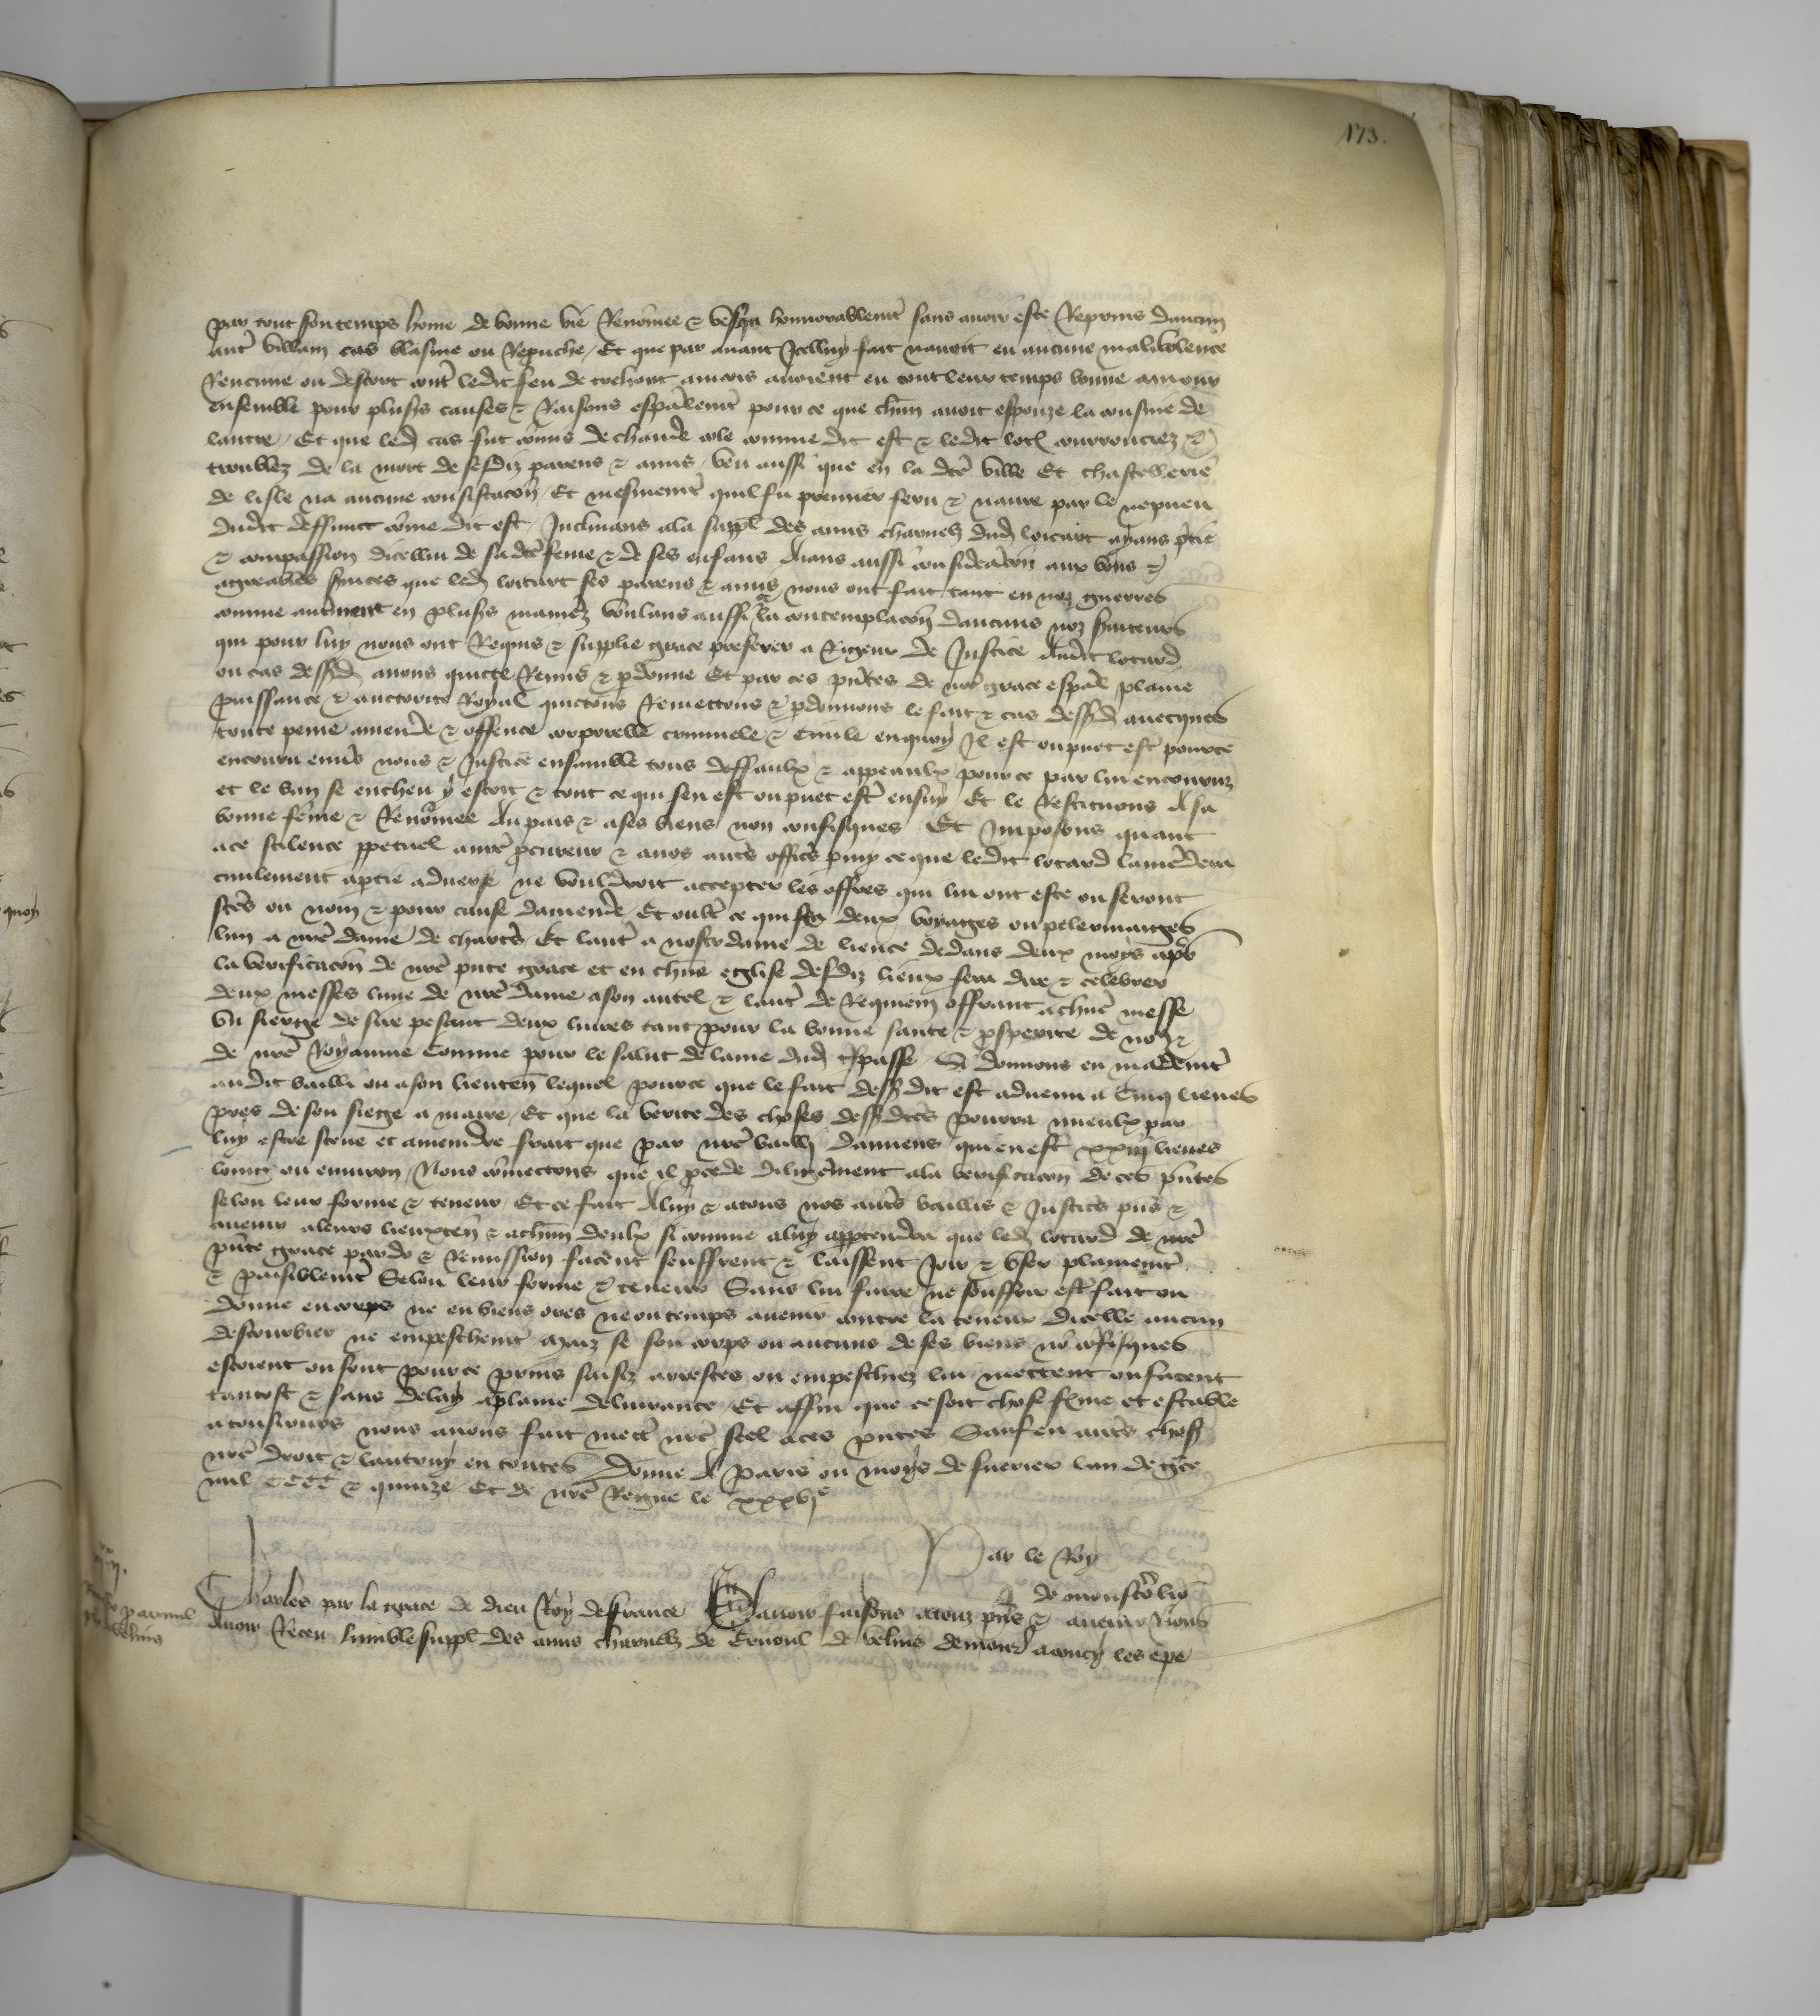 173.
par tout son temps home de bonne vie Renomee & vesqu honnorablemt sans avoir este Reprins daucun
autre villain cas blasme ou Reprouche / Et que par avant Icelluy fait navoit eu aucune malivolence
Rancune ou descort contre ledit feu de trehout aincois avoient eu tout leur temps bonne amour
ensemble pour plusrs causes & Raisons espalemt pour ce que chun avoit espouze la cousine de
lautre / Et que led cas fut comis de chaude cole comme dit est & ledit loc courroucez &
troublez de la mort de sesdiz parens & amis / veu aussi que en la dte ville Et chastellerie
de lisle na aucune confiscacon / Et mesmemt quil fu premier feru & navre par le nepveu
dudit deffunct come dit est / Inclinans ala suppl des amis charnelz dud locart ayans pitie
& compassion dicellui de sadte feme & de ses enfans Aians aussi consideracon aux bons &
agreables svices que led locart ses parens & amis nous ont fait tant en noz guerres
comme autmet en plusrs manies voulans aussi a la contemplacon daucuns noz svteurs
qui pour luy nous ont Requis & supplie grace preferer a Rigeur de Justice Audit locard
ou cas dessusd avons quicte Remis & pdonne Et par ces pntes de nre grace espal plaine
puissance & auctorite Royal quictons Remectons & pdonnons le fait & cas dessusd avecques
toute peine amende & offence corporelle criminele & Civile enquoy Il est ou puet est pource
encouru envers nous & Justice ensamble tous deffaulx & appeaulx pource par lui encouruz
et le ban se encheu y estoit & tout ce qui sen est ou puet estre ensuy Et le Restituons A sa
bonne feme & Renomee Au pais & ases biens non confisques Et Imposons quant
ace scilence ppetuel anre pcureur & anos autres offics pmy ce que ledit locard lamendera
civilement aptie adverse ne vouldroit accepter les offres qui lui ont este ou seront
fctes ou nom & pour cause damende / Et oultre ce qui fera deux voyages ou pelerinaiges
lun a nre dame de chartres Et lautre a nostredame de lience dedans deux moys apres
la verificacon de nre pnte grace et en chune eglise desdiz lieux fera dire & celebrer
deux messes lune de nre dame ason autel & lautre de Requiem offrant achune messe
un sierge de sire pesant deux livres tant pour la bonne sante & psperite de nous &
de nre Royaume Comme pour le salut de lame dud trespasse / Si donnons en mademt
audit bailli ou ason lieuten lequel pource que le fait dess dit est advenu a Cinq lieues
pres de son siege a maire / Et que la verite des choses dess dctes pourra mieulx par
luy estre sceue et amendre frait que par nre bailli damiens qui en est xxiiii lieues
loing ou environ / Nous comectons que il pcede diligement ala verificacon de ces pntes
selon leur forme & teneur / Et ce fait Aluy & atous nos autres baillis & Justics pns &
avenir aleurs lieuxten & achun deulx si comme aluy apptendra que led locard de nre
pnte grace pardon & Remission facent seuffrent & laissent Joir & user plainemt
& paisiblemt Selon leur forme & teneur Sans lui faire ne souffrir estre fait ou
donne encorps ne enbiens ores ne ou temps avenir contre la teneur dicelle aucun
destourbier ne empeschemt maiz se son corps ou aucuns de ses biens no cofisques
estoient ou sont pource prins saisiz arrestes ou empeschiez lui mettent ou facent
tantost & sans delay aplaine delivrance / Et affin que ce soit chose ferme et estable
atousiours nous avons fait mectre nre scel aces pntes Sauf en autres choses
nre droit & lautruy en toutes Donne A Paris ou moys de fevrier lan de gce
mil CCCC & quinze / Et de nre Regne le xxxvje
Par le Roy
J de monstrolio
Charles par la grace de dieu Roy de france Savoir faisons atouz pns & avenir Nous
Avoir Receu lumble suppl des amis charnelz de Ernoul de velins demour a coucy les epe